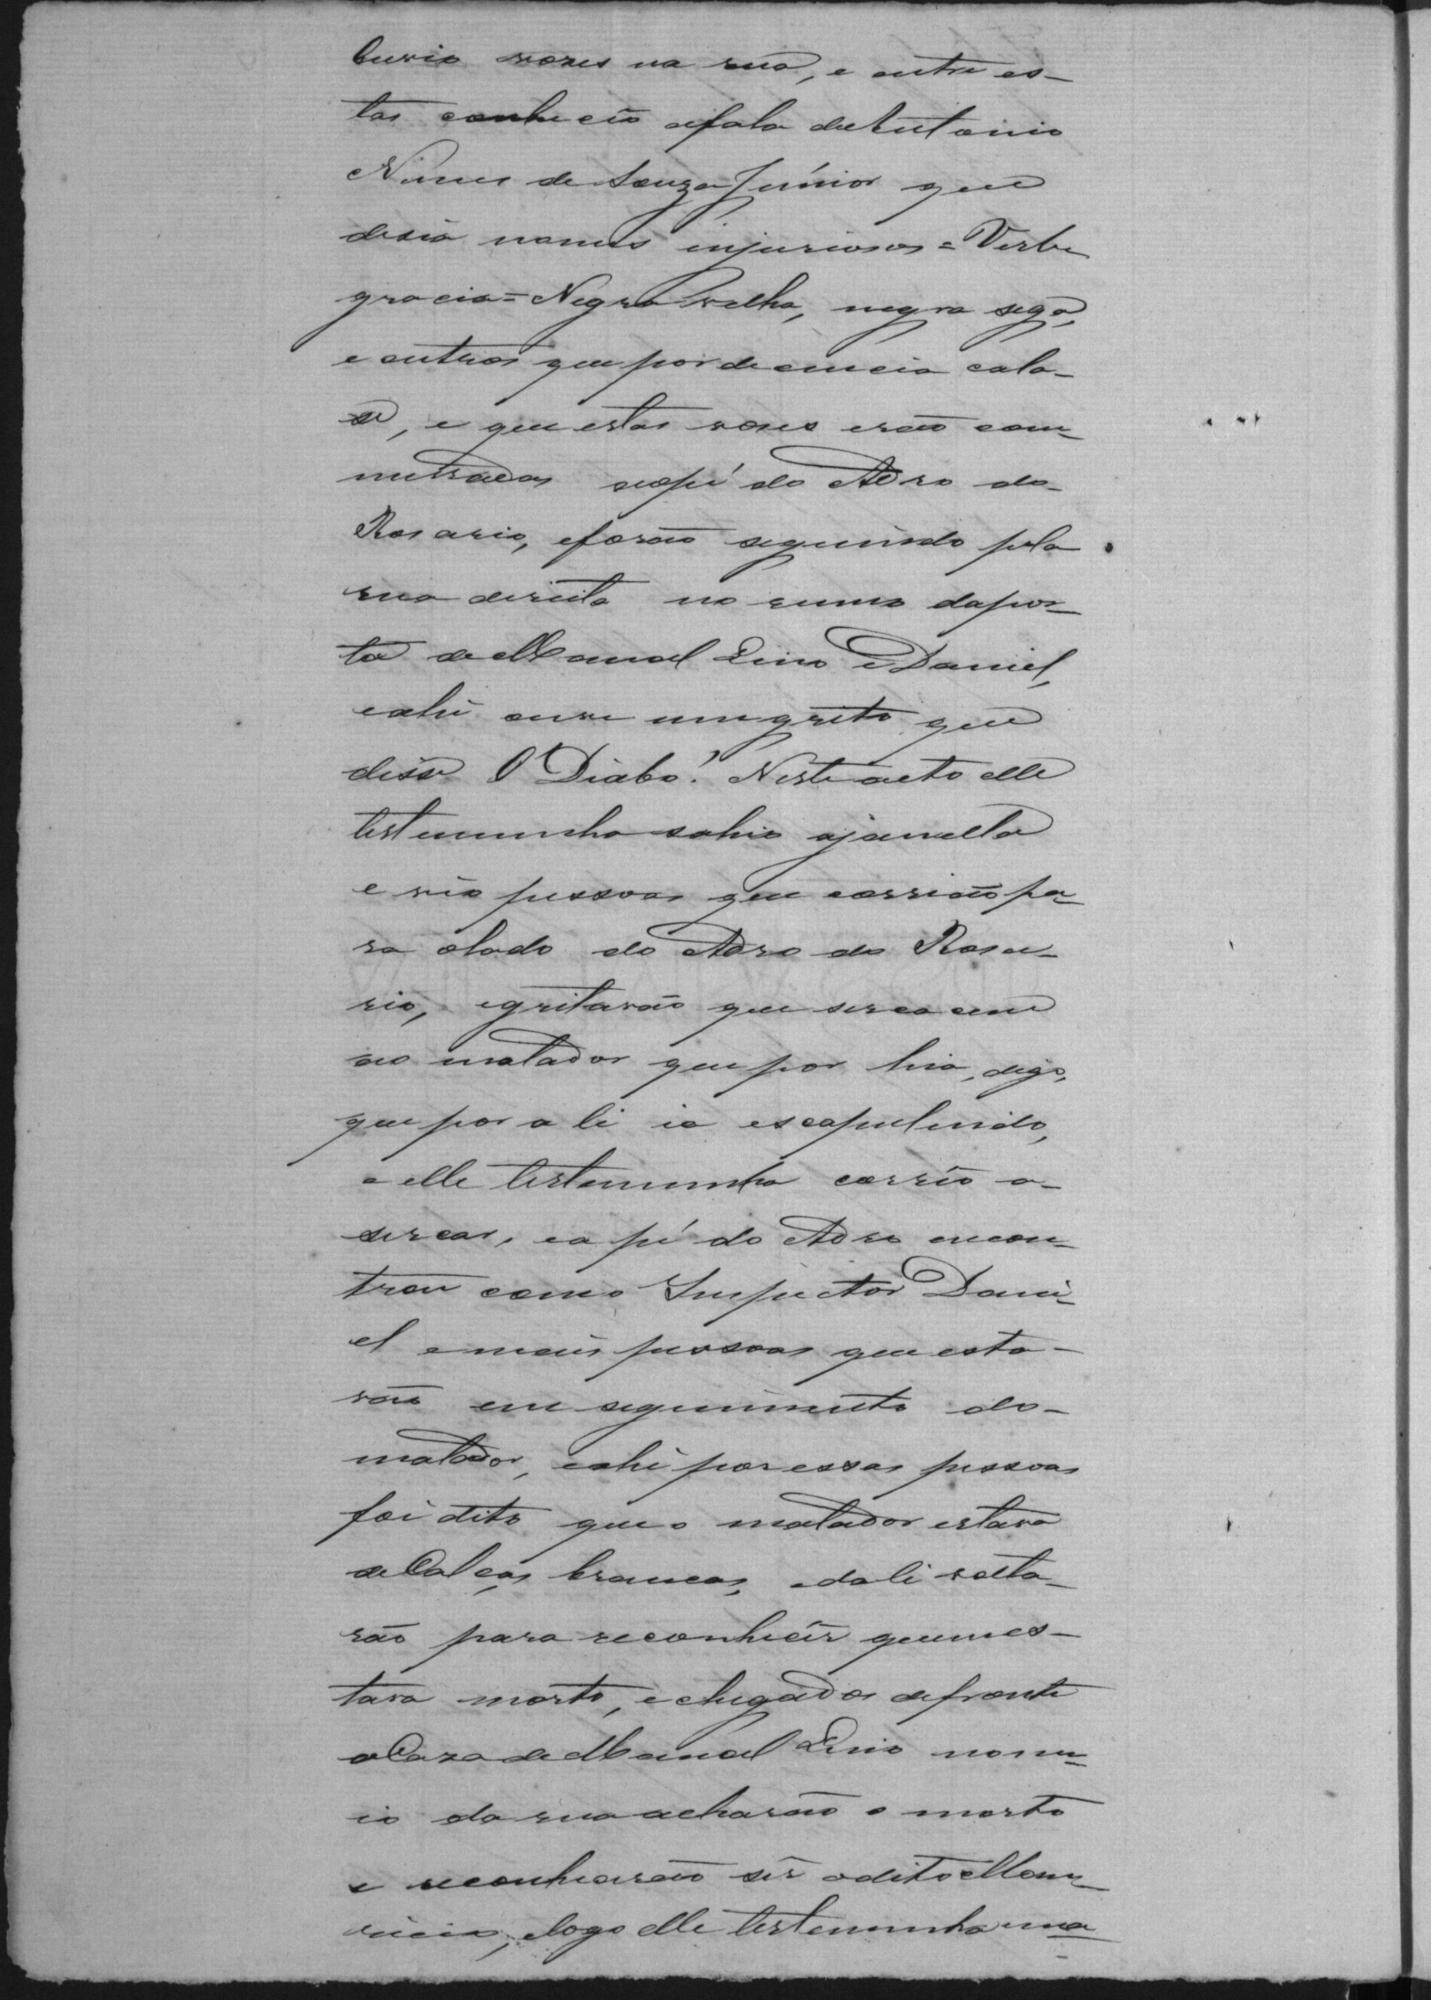 ouvio vozes na rua, e entre es-
tas conheceo afala de Antonio
Nunes de Souza Junior que
desia nomes injuriosos = Verbe
gracia = Negra velha, negra sega,
e outros que por decencia cala-
se, e que estas vozes erão com-
nutradas aopé do Adro do
Rosario, eforão seguindo pela
rua direita no rumo dapor-
ta de Manoel Lino e Daniel,
eahi ouve um grito que
disse O Diabo! Neste acto elle
testemunha sahio ajanella
e vio pessoas que corrião pa-
ra olado do Adro do Rosa-
rio, egritavão que sercacem
ao matador que por hia, digo,
que por ali ia escapulindo,
e elle testemunha corrêo a
sercar, ea pé do Adro encon-
trou como Inspector Dani-
el e mais pessoas que esta-
vão em seguimento do
matador, eahi por essas pessoas
foi dito que o matador estava
de Calças brancas, edali volta-
rão para reconhecêr quem es-
tava morto, e chegados defronte
a Caza de Manoel Lino no me-
io da rua acharão o morto
e reconhecerão sêr odito Mau-
ricio, elogo elle testemunha man